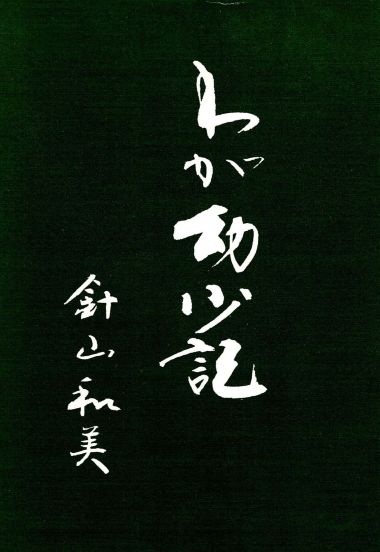 わが幼少記
針山和美